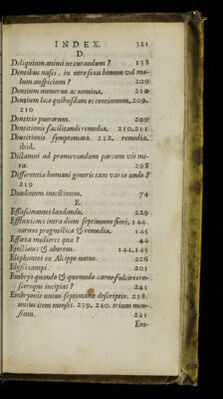 INDEX. 321
D.
Deliquium animi ut curandum ? 138
Dentibus nasci, in utroseas bonum vel ma-
lum auspicium ? 209
Dentium numerus ac nomina. 210
Dentium loco quibusdam os continuum, 209.
210
Dentitio puerorum. 209
Dentitionis facilitandi remedia. 210.211
Dentitionis symptomata. 212. remedia.
ibid.
Dictamni ad promovendum partum vis mi-
ra. 298
Differentia humani generis tam varia unde ?
219
Duodenum intestinum. 74
E.
Effascinantes laudando. 229
Effluxiones intra diem septimum fieri. 144.
earum prognostica & remedia. 145
Effœta mulieres quæ ? 44
Ejectiones & abortus. 144.145
Elephantus ex Alcippe natus. 226
Elysii campi. 201
Embryo quando & quomodo carne fulciri cre-
scereque incipiat ? 241
Embryonis unius septimanæ descriptio. 238.
unius item mensis. 239. 240. trium men-
sium. 241
Em-